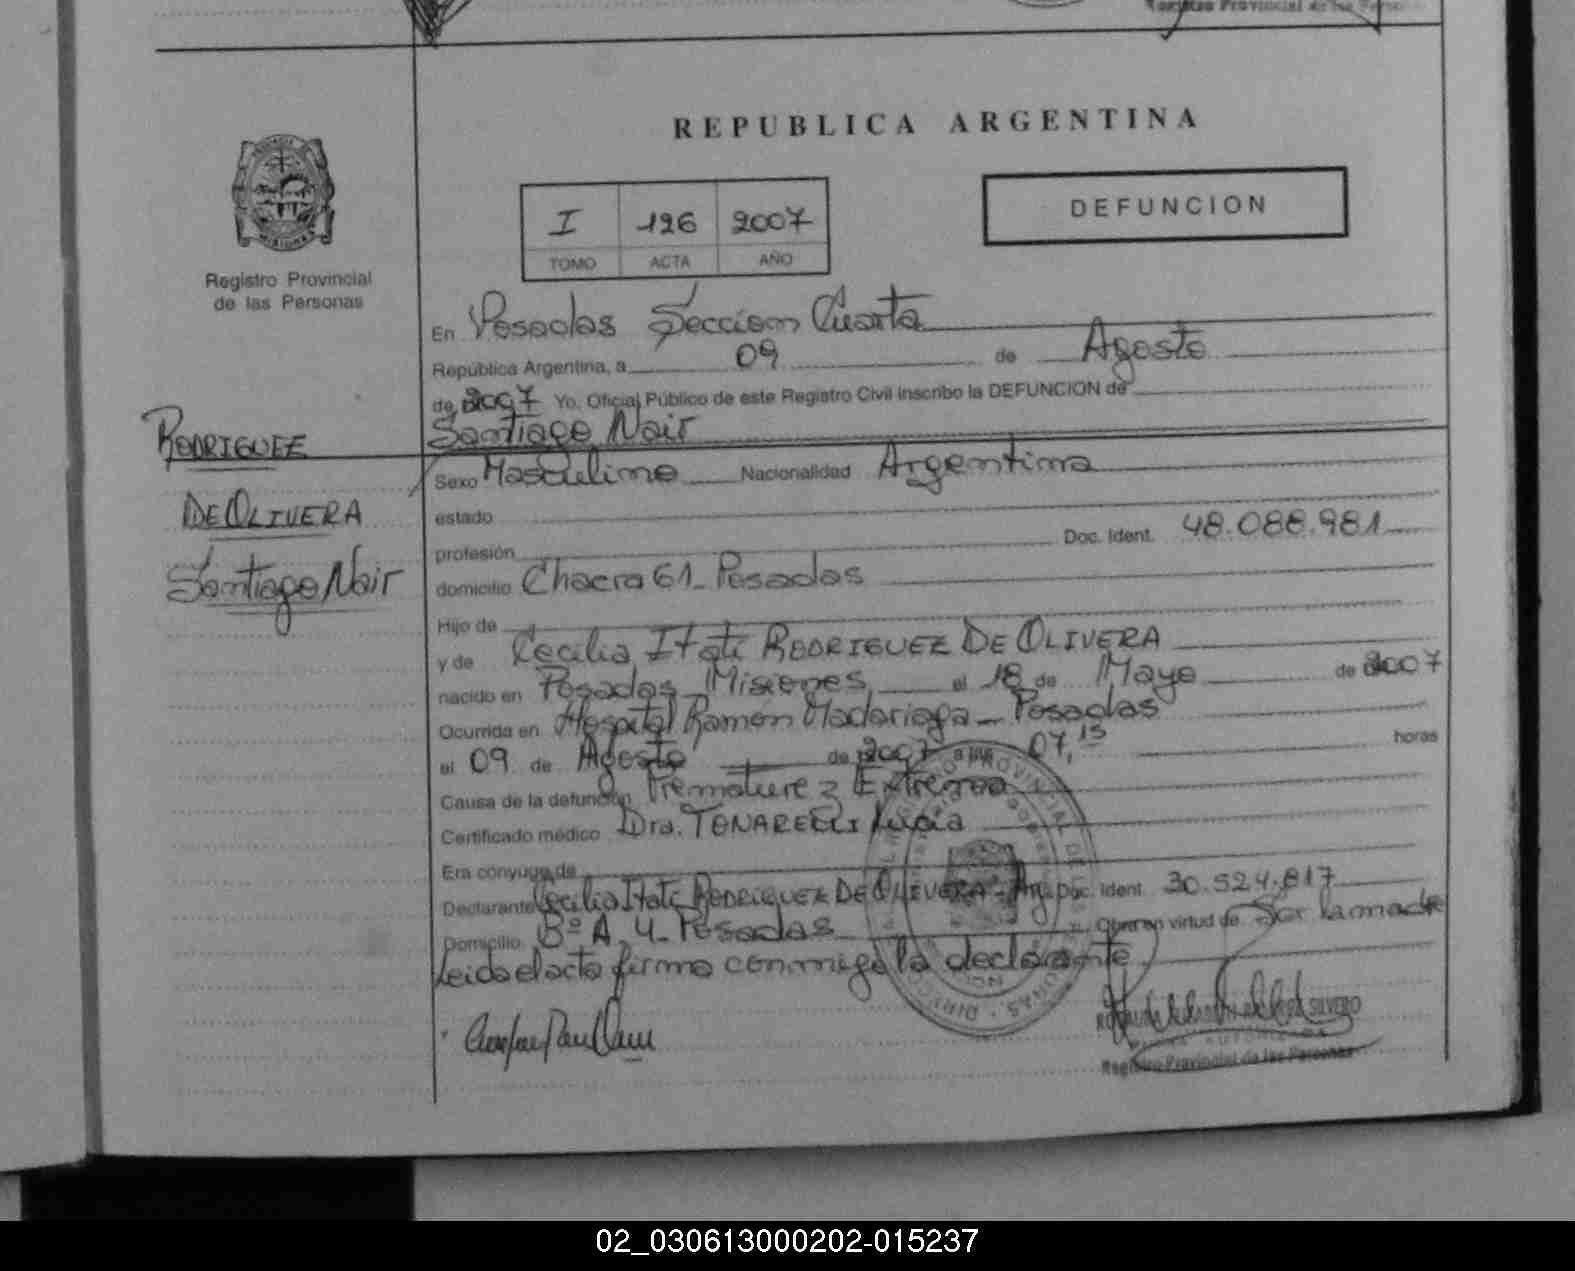 Registro Provincial de las Perso
REPUBLICA ARGENTINA
I 126 2007
TOMO ACTA AÑO
DEFUNCION
Registro Provincial
de las Personas
RODRIGUEZ
DE OLIVERA
Santiago Nair
En Posadas Seccion Cuarta
República Argentina, a 09 de Agosto
de 2007 Yo, Oficial Público de este Registro Civil inscribo la DEFUNCION de
Santiago Nair
Sexo Masculino Nacionalidad Argentina
estado
profesión Doc. Ident. 48.088.981
domicilio Chacra 61 - Posadas
Hijo de
y de Cecilia Itati RODRIGUEZ DE OLIVERA
nacido en Posadas Misiones el 18 de Mayo de 2007
Ocurrida en Hospital Ramón Madariaga - Posadas
el 09 de Agosto de 2007 a las 07,15 horas
Causa de la defunción Prematurez Extrema
Certificado médico Dra. Lucia
Era cónyuge de
Declarante Cecilia Itati RODRIGUEZ DE OLIVERA - Arg. Doc. Ident. 30.524.817
Domicilio Bº A 4 - Posadas Obra en virtud de Ser la madre
Leida el acta firma conmigo la declarante
Registro Provincial de las Personas
02_030613000202-015237